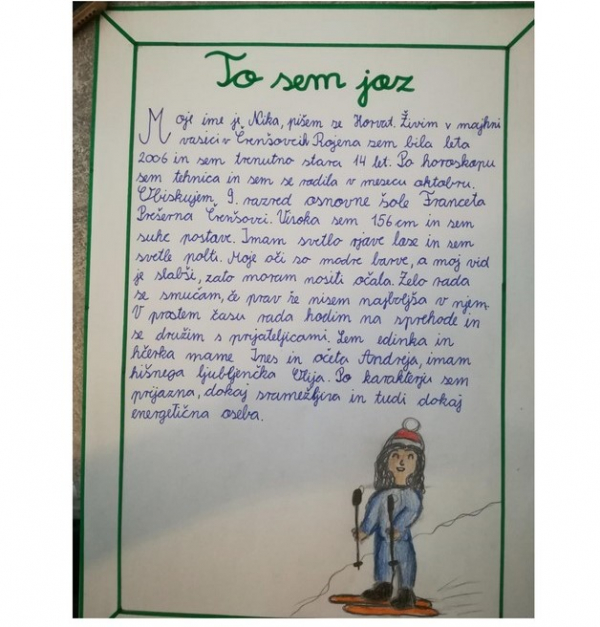 To sem jaz
Moje ime je Nika, pišem se Horvat. Živim v majhni
vasici v Črenšovcih. Rojena sem bila leta
2006 in sem trenutno stara 14 let. Po horoskopu
sem tehnica in sem se rodila v mesecu oktobru.
Obiskujem 9. razred osnovne šole Franceta
Prešerna Črenšovci. Visoka sem 156 cm in sem
suhe postave. Imam svetlo rjave lase in sem
svetle polti. Moje oči so modre barve, a moj vid
je slabši, zato moram nositi očala. Zelo rada
se smučam, če prav še nisem najboljša v njem.
V prostem času rada hodim na sprehode in
se družim s prijateljicami. Sem edinka in
hčerka mame Ines in očeta Andreja, imam
hišnega ljubljenčka Olija. Po karakterju sem
prijazna, dokaj sramežljiva in tudi dokaj
energetična oseba.